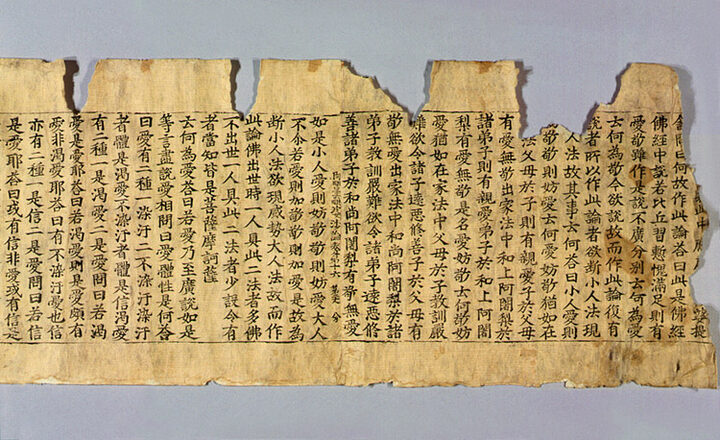 問曰何故作此論荅曰此是佛經
佛經中說若比丘習慙愧滿足則有
愛敬雖作是說不廣分別云何為愛
云何為敬今欲說故而作此論復有
說者所以作此論者欲斷小人法現
人法故其事云何荅曰小人愛則
敬敬則妨愛云何愛妨敬猶如在
法父母於子則有親愛子於父母
有愛無敬出家法中和上阿闍梨於
諸弟子則有親愛弟子於和上阿闍
梨有愛無敬是名愛妨敬云何敬妨
愛猶如在家法中父母於子教訓嚴
難欲令諸子遠惡修善子於父母有
敬無愛出家法中和尚阿闍梨於諸
弟子教訓嚴難欲令諸弟子遠惡修
善諸弟子於和尚阿闍梨有敬無愛
如是小人愛則妨敬敬則妨愛大人
不尒若愛則加敬敬則加愛是故為
斷小人法欲現感勢大人法故而作
此論佛出世時一人具此二法者多佛
不出世一人具此二法者少設令有
者當知皆是菩薩摩訶薩
云何為愛荅曰若愛乃至廣說如是
等言盡說愛相問曰愛體性是何荅
曰愛有二種一染汙二不染汙染汙
者體是渴愛不染汙者體是信渴愛
有二種一是渴愛二是愛問曰若渴
愛是愛耶荅曰若渴愛則是愛頗有
愛非渴愛耶荅曰有不染汙愛也信
亦有二種一是信二是愛問曰若信
是愛耶荅曰或有信非愛或有信是